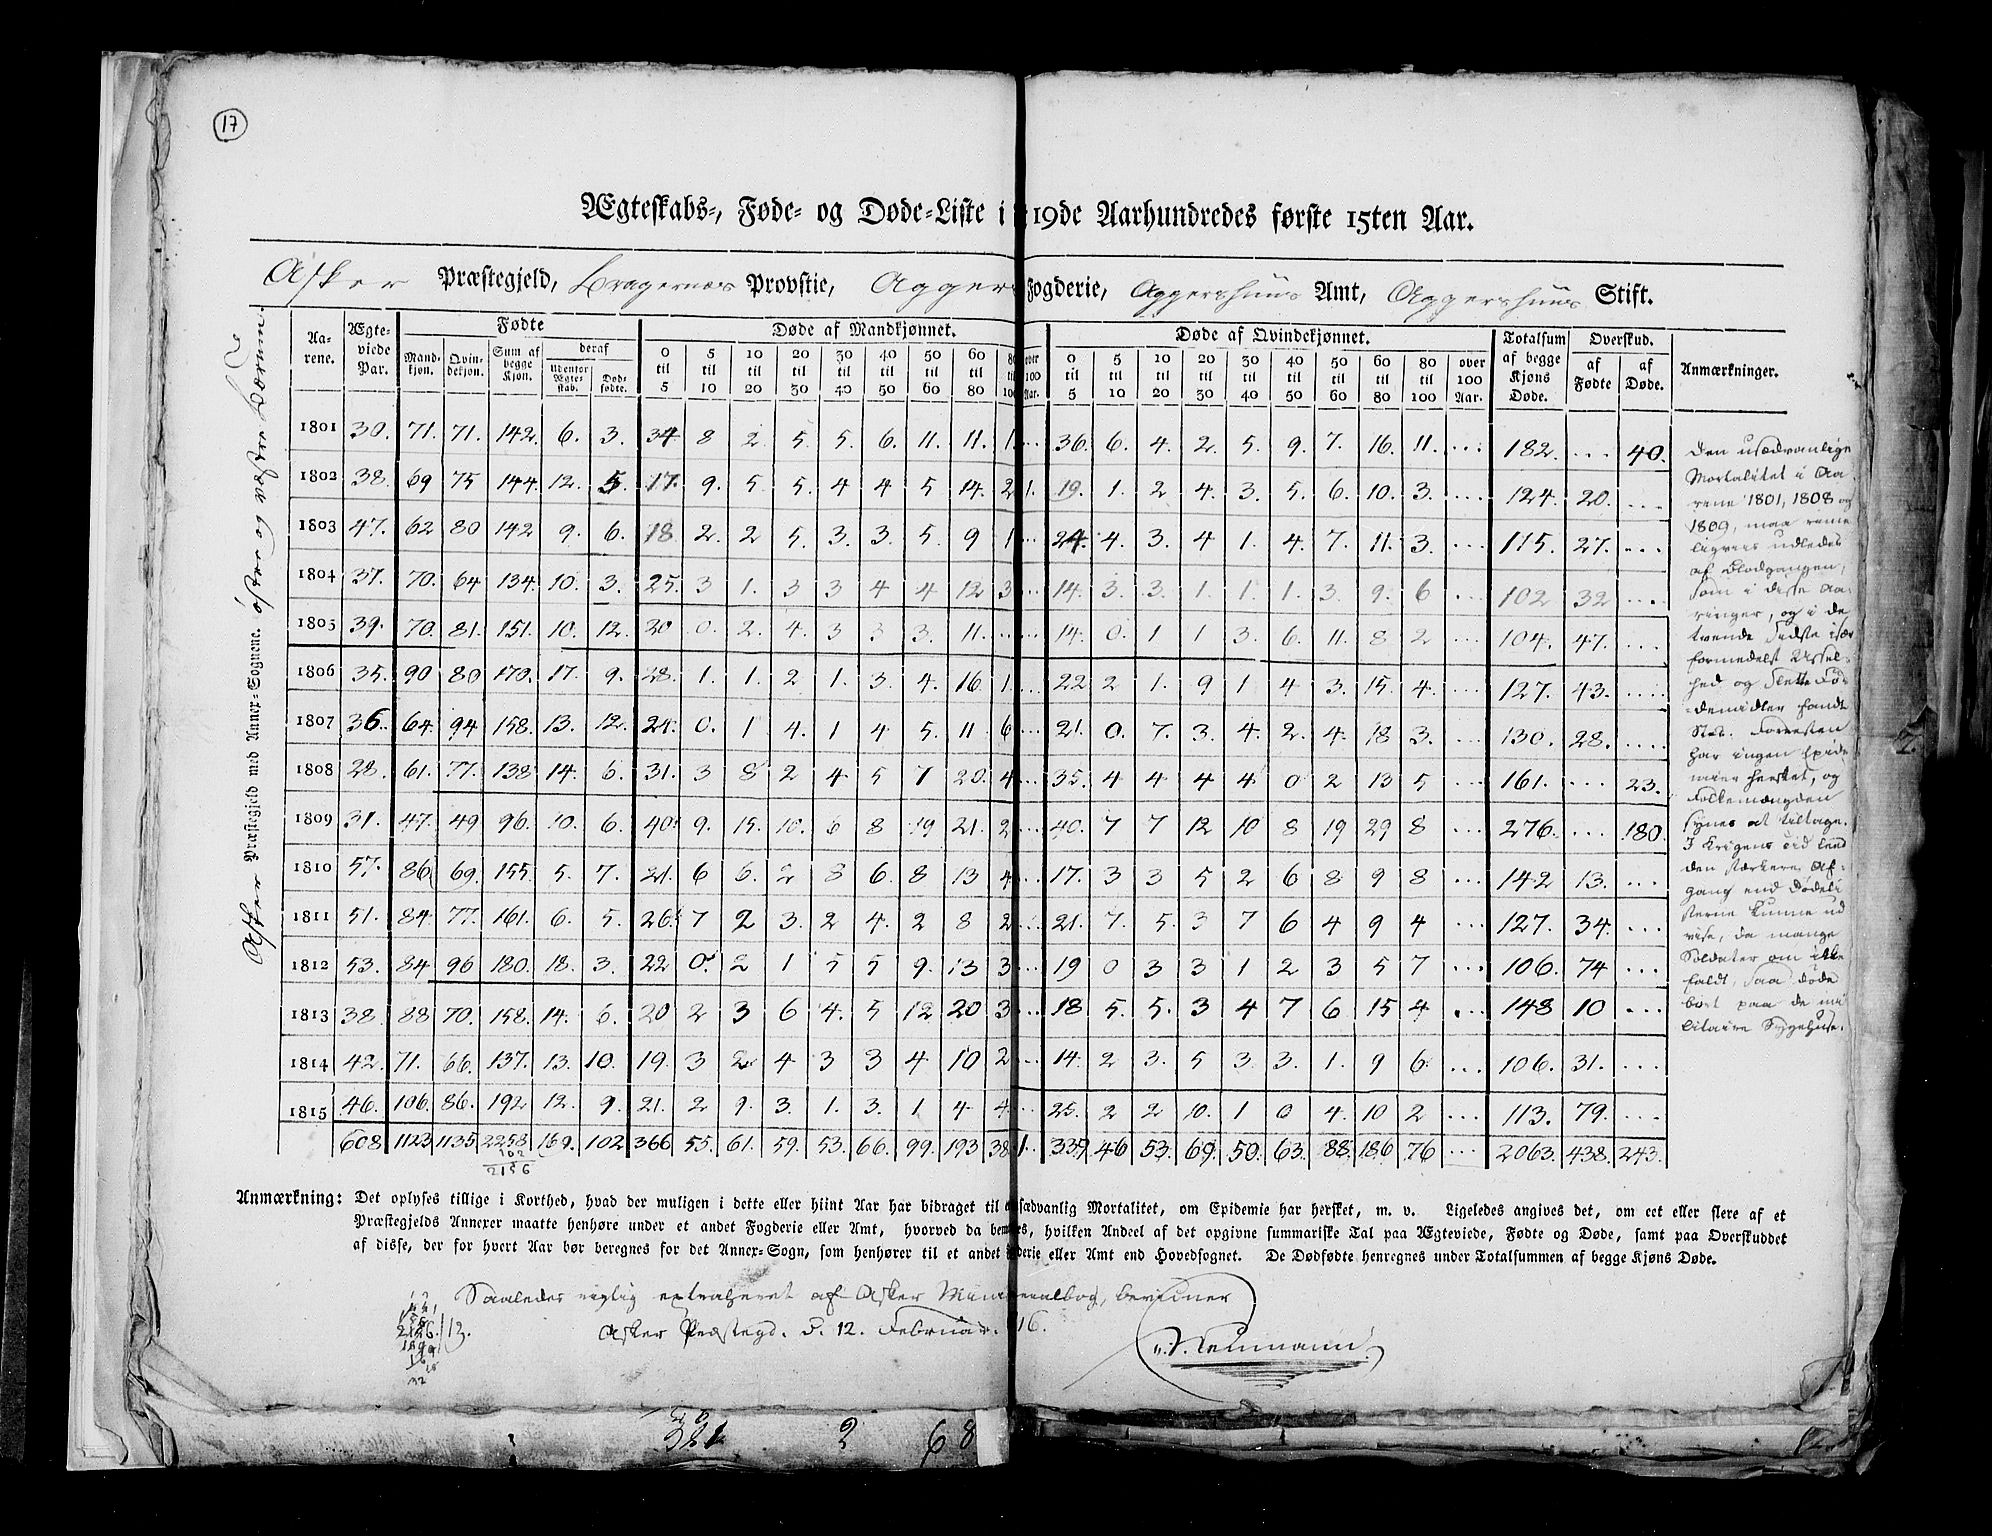 17
Ægteskabs-, Føde- og Døde-Liste i 19de Aarhundredes første 15ten Aar.
Asker Præstegjeld, Bragernæs Provstie, Agger Fogderie, Aggershuus Amt, Aggershuus Stift.
Asker Præstegjeld med Annex-Sognene. østre og vestre Bærum
Aarene. Ægteviede Par. Fødte Døde af Mandkjønnet. Døde af Qvindekjønnet. Totalsum af begge Kjøns Døde. Overskud. Anmærkninger.
Mandkjøn. Qvindekjøn. Sum af begge Kjøn. deraf Udenfor Ægteskab. Dødfødte. 0 til 5 5 til 10 10 til 20 20 til 30 30 til 40 40 til 50 50 til 60 60 til 80 80 til 100 over 100 Aar. 0 til 5 5 til 10 10 til 20 20 til 30 30 til 40 40 til 50 50 til 60 60 til 80 80 til 100 over 100 Aar. af Fødte af Døde.
1801 30. 71. 71. 142. 6. 3. 34 8 2. 5. 5. 6. 11. 11. 1. ... 36. 6. 4. 2. 5. 9. 7. 16 11. ... 182. ... 40.
1802 38. 69 75 144. 12. 5. 17. 9. 5. 5. 4 4 5 14. 2 1. 19. 1. 2 4. 3. 5. 6. 10. 3. ... 124. 20. ...
1803 47. 62 80 142 9. 6. 18 2. 2 5. 3. 3. 5. 9 1 ... 24. 4. 3. 4 1. 4. 7. 11. 3. ... 115. 27. ...
1804 37. 70. 64 134. 10. 3. 25. 3 1. 3 3 4 4 12 3 ... 14. 3. 3. 1. 1. 1. 3. 9. 6 ... 102 32 ...
1805 39. 70. 81. 151. 10. 12. 20 0. 2. 4. 3 3 3. 11. ... ... 14. 0. 1 1 3. 6. 11. 8 2 ... 104. 47. ...
1806 35. 90 80 170. 17. 9. 28. 1. 1. 2 1. 3. 4. 16 1. ... 22 2 1. 9 1 4 3. 15. 4. ... 127. 43. ...
1807 36. 64. 94 158. 13. 12. 24. 0. 1 4. 1 4 5. 11 6 ... 21. 0. 7. 3. 4. 2. 4. 18 3. ... 130. 28. ...
1808 28. 61. 77. 138 14. 6. 31. 3 8 2 4 5 7 20. 4 ... 35. 4 4 4 4. 0 2 13 5 ... 161. ... 23.
1809 31. 47. 49 96. 10. 6. 40. 9. 15. 10. 6 8 19 21. 2 ... 40. 7 7 12 10 8 19 29 8 ... 276. ... 180.
1810 57. 86. 69. 155. 5. 7. 21. 6 6. 2 8 6. 8 13 4 ... 17. 3 3 5 2 6 8 9 8 ... 142 13. ...
1811 51. 84. 77. 161. 6. 5. 26. 7 2 3. 2 4. 2 8 2 ... 21. 7. 5. 3 7 6 4 9 4 ... 127. 34. ...
1812 53. 84 96 180. 18. 3. 22 0. 2 1 5 5 9. 13 3 ... 19 0 3 3 1 2 3 5 7 ... 106. 74 ...
1813 38. 88 70. 158. 14. 6. 20 2 3 6 4. 5 12 20 3 ... 18 5. 5. 3 4 7 6. 15 4 ... 148 10 ...
1814 42. 71. 66. 137. 13. 10. 19. 3 2 4 3 3 4 10 2 ... 14. 2 3. 5 3. 3. 1. 9 6 ... 106. 31. ...
1815 46. 106. 86. 192 12. 9. 21. 2 9. 3. 1. 3. 1. 4 4 ... 25. 2 2 10. 1 0 4. 10 2 ... 113. 79. ...
608 1123 1135 2258 159. 102 366 55. 61. 59. 53. 66. 99. 193 38 1. 339 46 53. 69. 50. 63. 88. 186 76 ... 2063. 438. 243.
102
2156
Den usædvanlige
Mortalitet i Aa-
rene 1801, 1808 og
1809, maa rime-
ligviis udledes
af Blodgangen,
som i disse Aa-
ringer, og i de
tvende sidste især
formedelst Ussel-
hed og slette Fø-
demidler fandt
Sted. Forresten
har ingen Epide-
mier hersket, og
Folkemængden
synes at tiltage.
I Krigens Tid leed
den stærkere Af-
gang end Dødeli-
sterne kunne ud-
vise, da mange
Soldater om ikke
faldt, saa døde
bort paa de mi-
litaire Sygehuse.
Anmærkning: Det oplyses tillige i Korthed, hvad der muligen i dette eller hiint Aar har bidraget til usædvanlig Mortalitet, om Epidemie har hersket, m. v. Ligeledes angives det, om eet eller flere af et
Præstegjelds Annexer maatte henhøre under et andet Fogderie eller Amt, hvorved da bemærkes, hvilken Andeel af det opgivne summariske Tal paa Ægteviede, Fødte og Døde, samt paa Overskuddet
af disse, der for hvert Aar bør beregnes for det Annex-Sogn, som henhører til et andet Fogderie eller Amt end Hovedsognet. De Dødfødte henregnes under Totalsummen af begge Kjøns Døde.
Saaledes rigtig extraheret af Asker Ministerialbog, bevidner
Asker Præstegd. d. 12. Februar. 16.
Neumann.
321 2 68